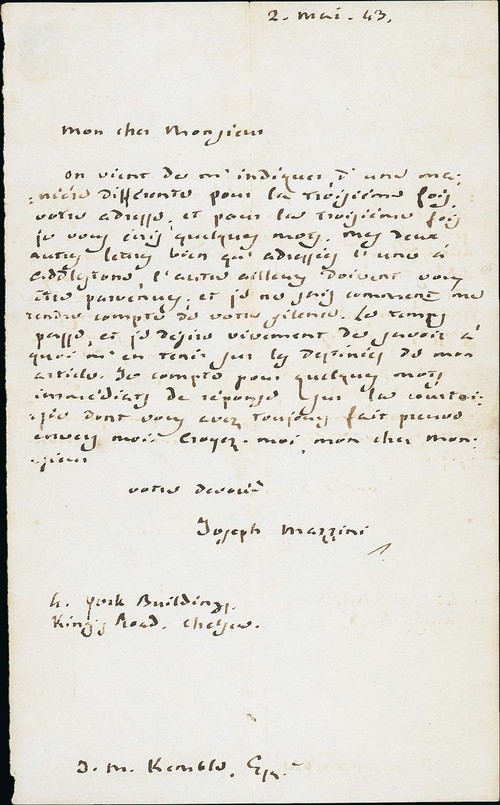 2. Mai. 43.
Mon cher Monsieur
On vient de m'indiquer, d'une ma-
-nière différente pour la troisième fois,
votre adresse, et pour la troisième fois
je vous écris quelques mots. Mes deux
autres lettres bien qu'adressées l'une à
Addlestone, l'autre ailleurs doivent vous
être parvenues, et je ne sais comment me
rendre compte de votre silence. Le temps
passe, et je désire vivement de savoir à
quoi m'en tenir sur les destinées de mon
article. Je compte pour quelques mots
immédiats de réponse sur la courtoi-
-sie dont vous avez toujours fait preuve
envers moi. Croyez-moi, mon cher Mon-
-sieur
votre dévoué
Joseph Mazzini
4. York Buildings,
King's Road. Chelsea.
J. M. Kemble, Esqr.